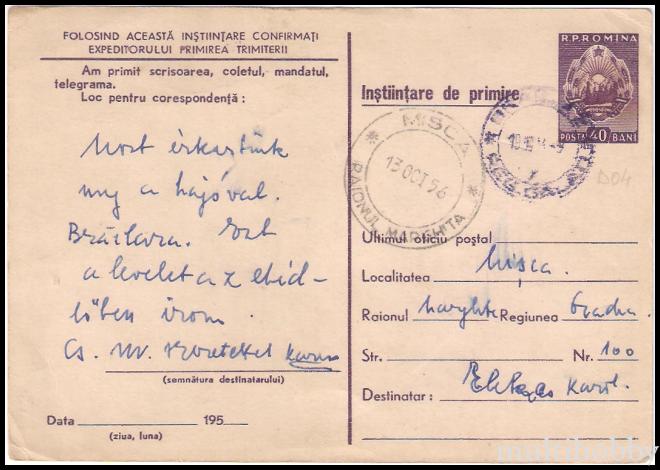 FOLOSIND ACEASTĂ INȘTIINȚARE CONFIRMAȚI
EXPEDITORULUI PRIMIREA TRIMITERII
Am primit scrisoarea, coletul, mandatul,
telegrama.
Loc pentru corespondență :
Most érkeztünk
meg a hajóval.
Brăilara. Ezt
a levelet az ebéd-
lőben irom.
(semnătura destinatarului)
Data 195
(ziua, luna)
R.P.ROMINA
POSTA 40 BANI
Inștiințare de primire
MISCA
13 OCT 56
RAIONUL MARGHITA
D04
Ultimul oficiu poștal
Localitatea Mișca.
Raionul Marghita Regiunea Oradea
Str. Nr. 100
Destinatar : Károl.
multihobby